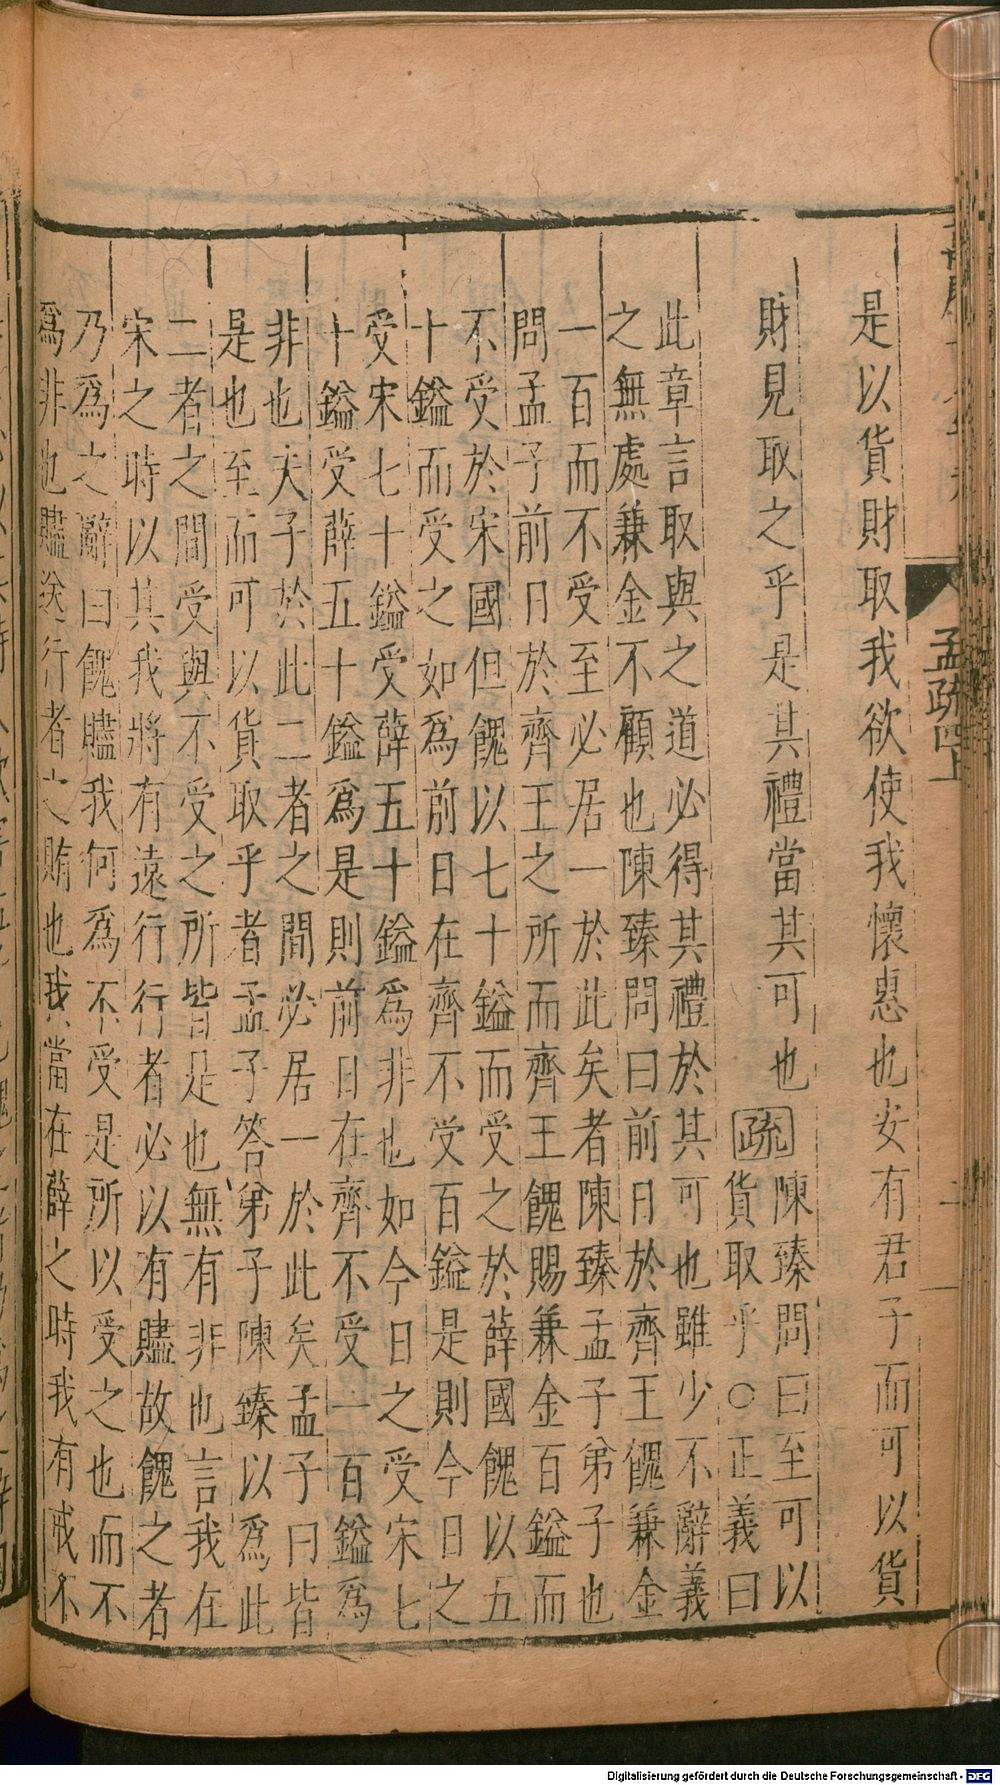 是以貨財取我欲使我懷惠也安有君子而可以貨
財見取之乎是其禮當其可也
疏
陳臻問曰至可以
貨取乎○正義曰
此章言取與之道必得其禮於其可也雖少不辭義
之無處兼金不顧也陳臻問曰前日於齊王餽兼金
一百而不受至必居一於此矣者陳臻孟子弟子也
問孟子前日於齊王之所而齊王餽賜兼金百鎰而
不受於宋國但餽以七十鎰而受之於薛國餽以五
十鎰而受之如為前日在齊不受百鎰是則今日之
受宋七十鎰受薛五十鎰為非也如今日之受宋七
十鎰受薛五十鎰爲是則前日在齊不受一百鎰爲
非也夫子於此二者之間必居一於此矣孟子曰皆
是也至而可以貨取乎者孟子答弟子陳臻以爲此
二者之間受與不受之所皆是也無有非也言我在
宋之時以其我將有遠行行者必以有贐故餽之者
乃爲之辭曰餽贐我何爲不受是所以受之也而不
爲非也贐送行者之賄也我當在薛之時我有戒不
孟疏四上
二
Digitalisierung gefördert durch die Deutsche Forschungsgemeinschaft - DFG